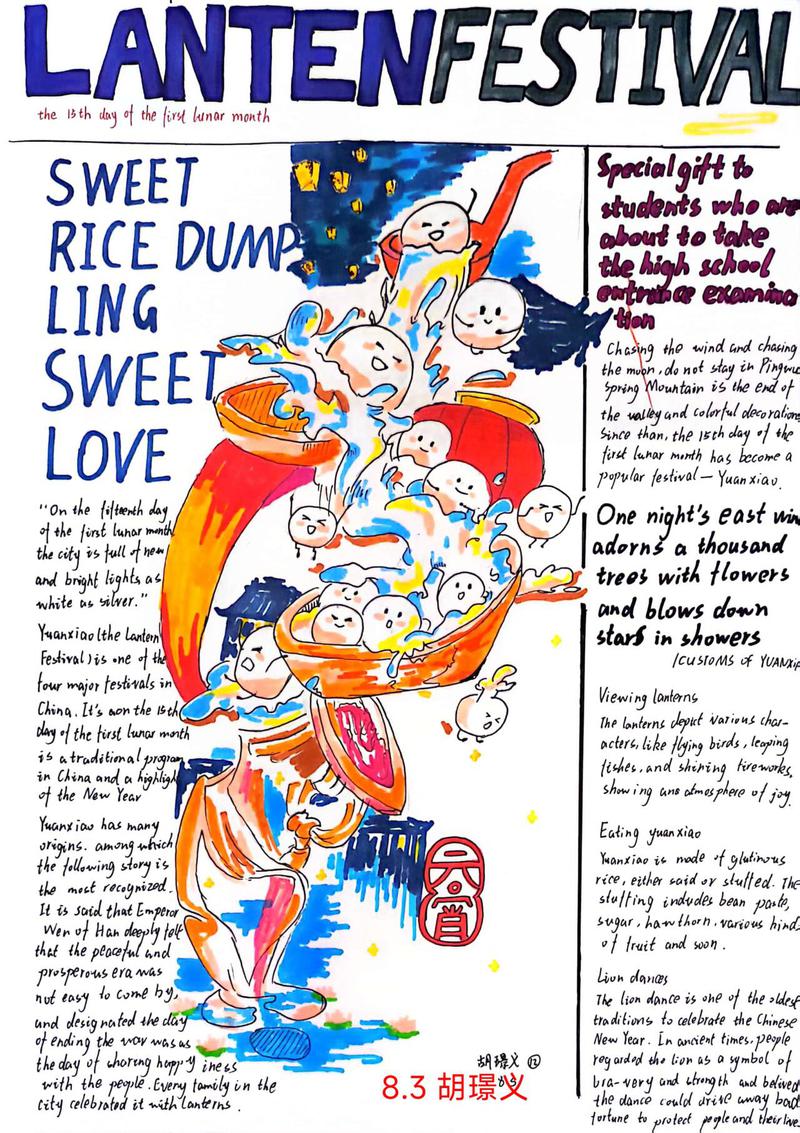 LANTENFESTIVAL
the 15th day of the first lunar month
SWEET
RICE DUMP
LING
SWEET
LOVE
"On the fifteenth day
of the first lunar month
the city is full of new
and bright lights as
white as silver."
Yuanxiao (the Lantern
Festival) is one of the
four major festivals in
China. It's aon the 15th
day of the first lunar month
is a traditional program
in China and a highligh
of the New Year
Yuanxiao has many
origins. among which
the following story is
the most recognized.
It is said that Emperor
Wen of Han deeply felt
that the peaceful and
prosperous era was
not easy to come by,
and designated the day
of ending the war was as
the day of sharing happy iness
with the people. Every family in the
city celebrated it with lanterns.
元宵
胡璟义 ⑫
8.3
8.3 胡璟义
Special gift to
students who are
about to take
the high school
entrance examina
tion
Chasing the wind and chasing
the moon, do not stay in Pingwu
Spring Mountain is the end of
the valley and colorful decorations
Since than, the 15th day of the
first lunar month has become a
popular festival — Yuanxiao.
One night's east win
adorns a thousand
trees with flowers
and blows down
stars in showers
/CUSTOMS OF YUANXIA
Viewing lanterns
The lanterns depict various char-
acters, like flying birds, leaping
fishes, and shining fireworks,
showing ans atmosphere of joy.
Eating yuanxiao
Yuanxiao is made of glutinous
rice, either said or stuffed. The
stuffing includes bean paste,
sugar, hawthorn, various hinds
of fruit and soon.
Lion dances
The lion dance is one of the oldest
traditions to celebrate the Chinese
New Year. In ancient times, people
regarded the lion as a symbol of
bra-very and strength and belived
the dance could drive away bad
fortune to protect people and their live